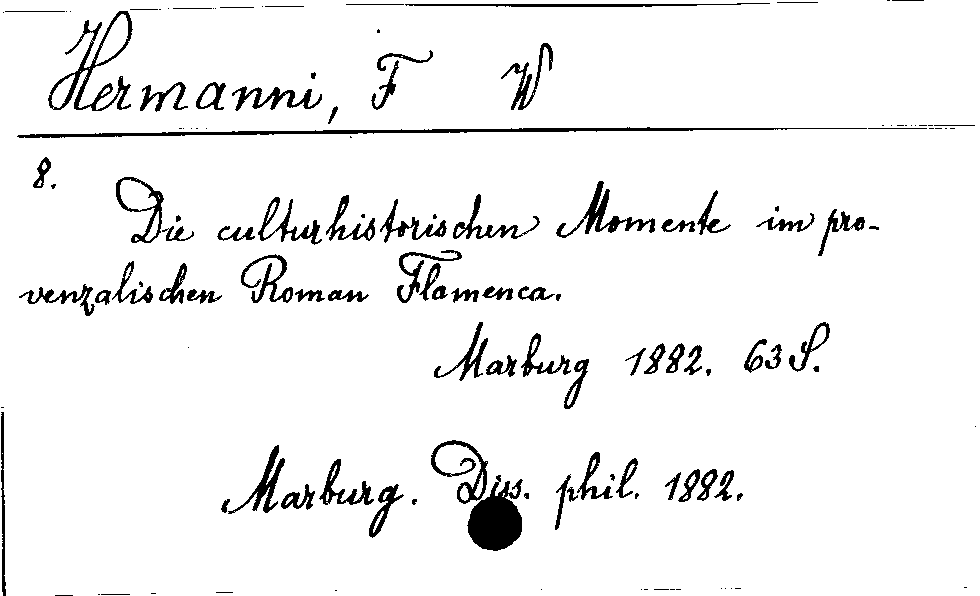 Hermanni, F W
8.
Die culturhistorischen Momente im pro-
venzalischen Roman Flamenca.
Marburg 1882. 63 S.
Marburg. Diss. phil. 1882.